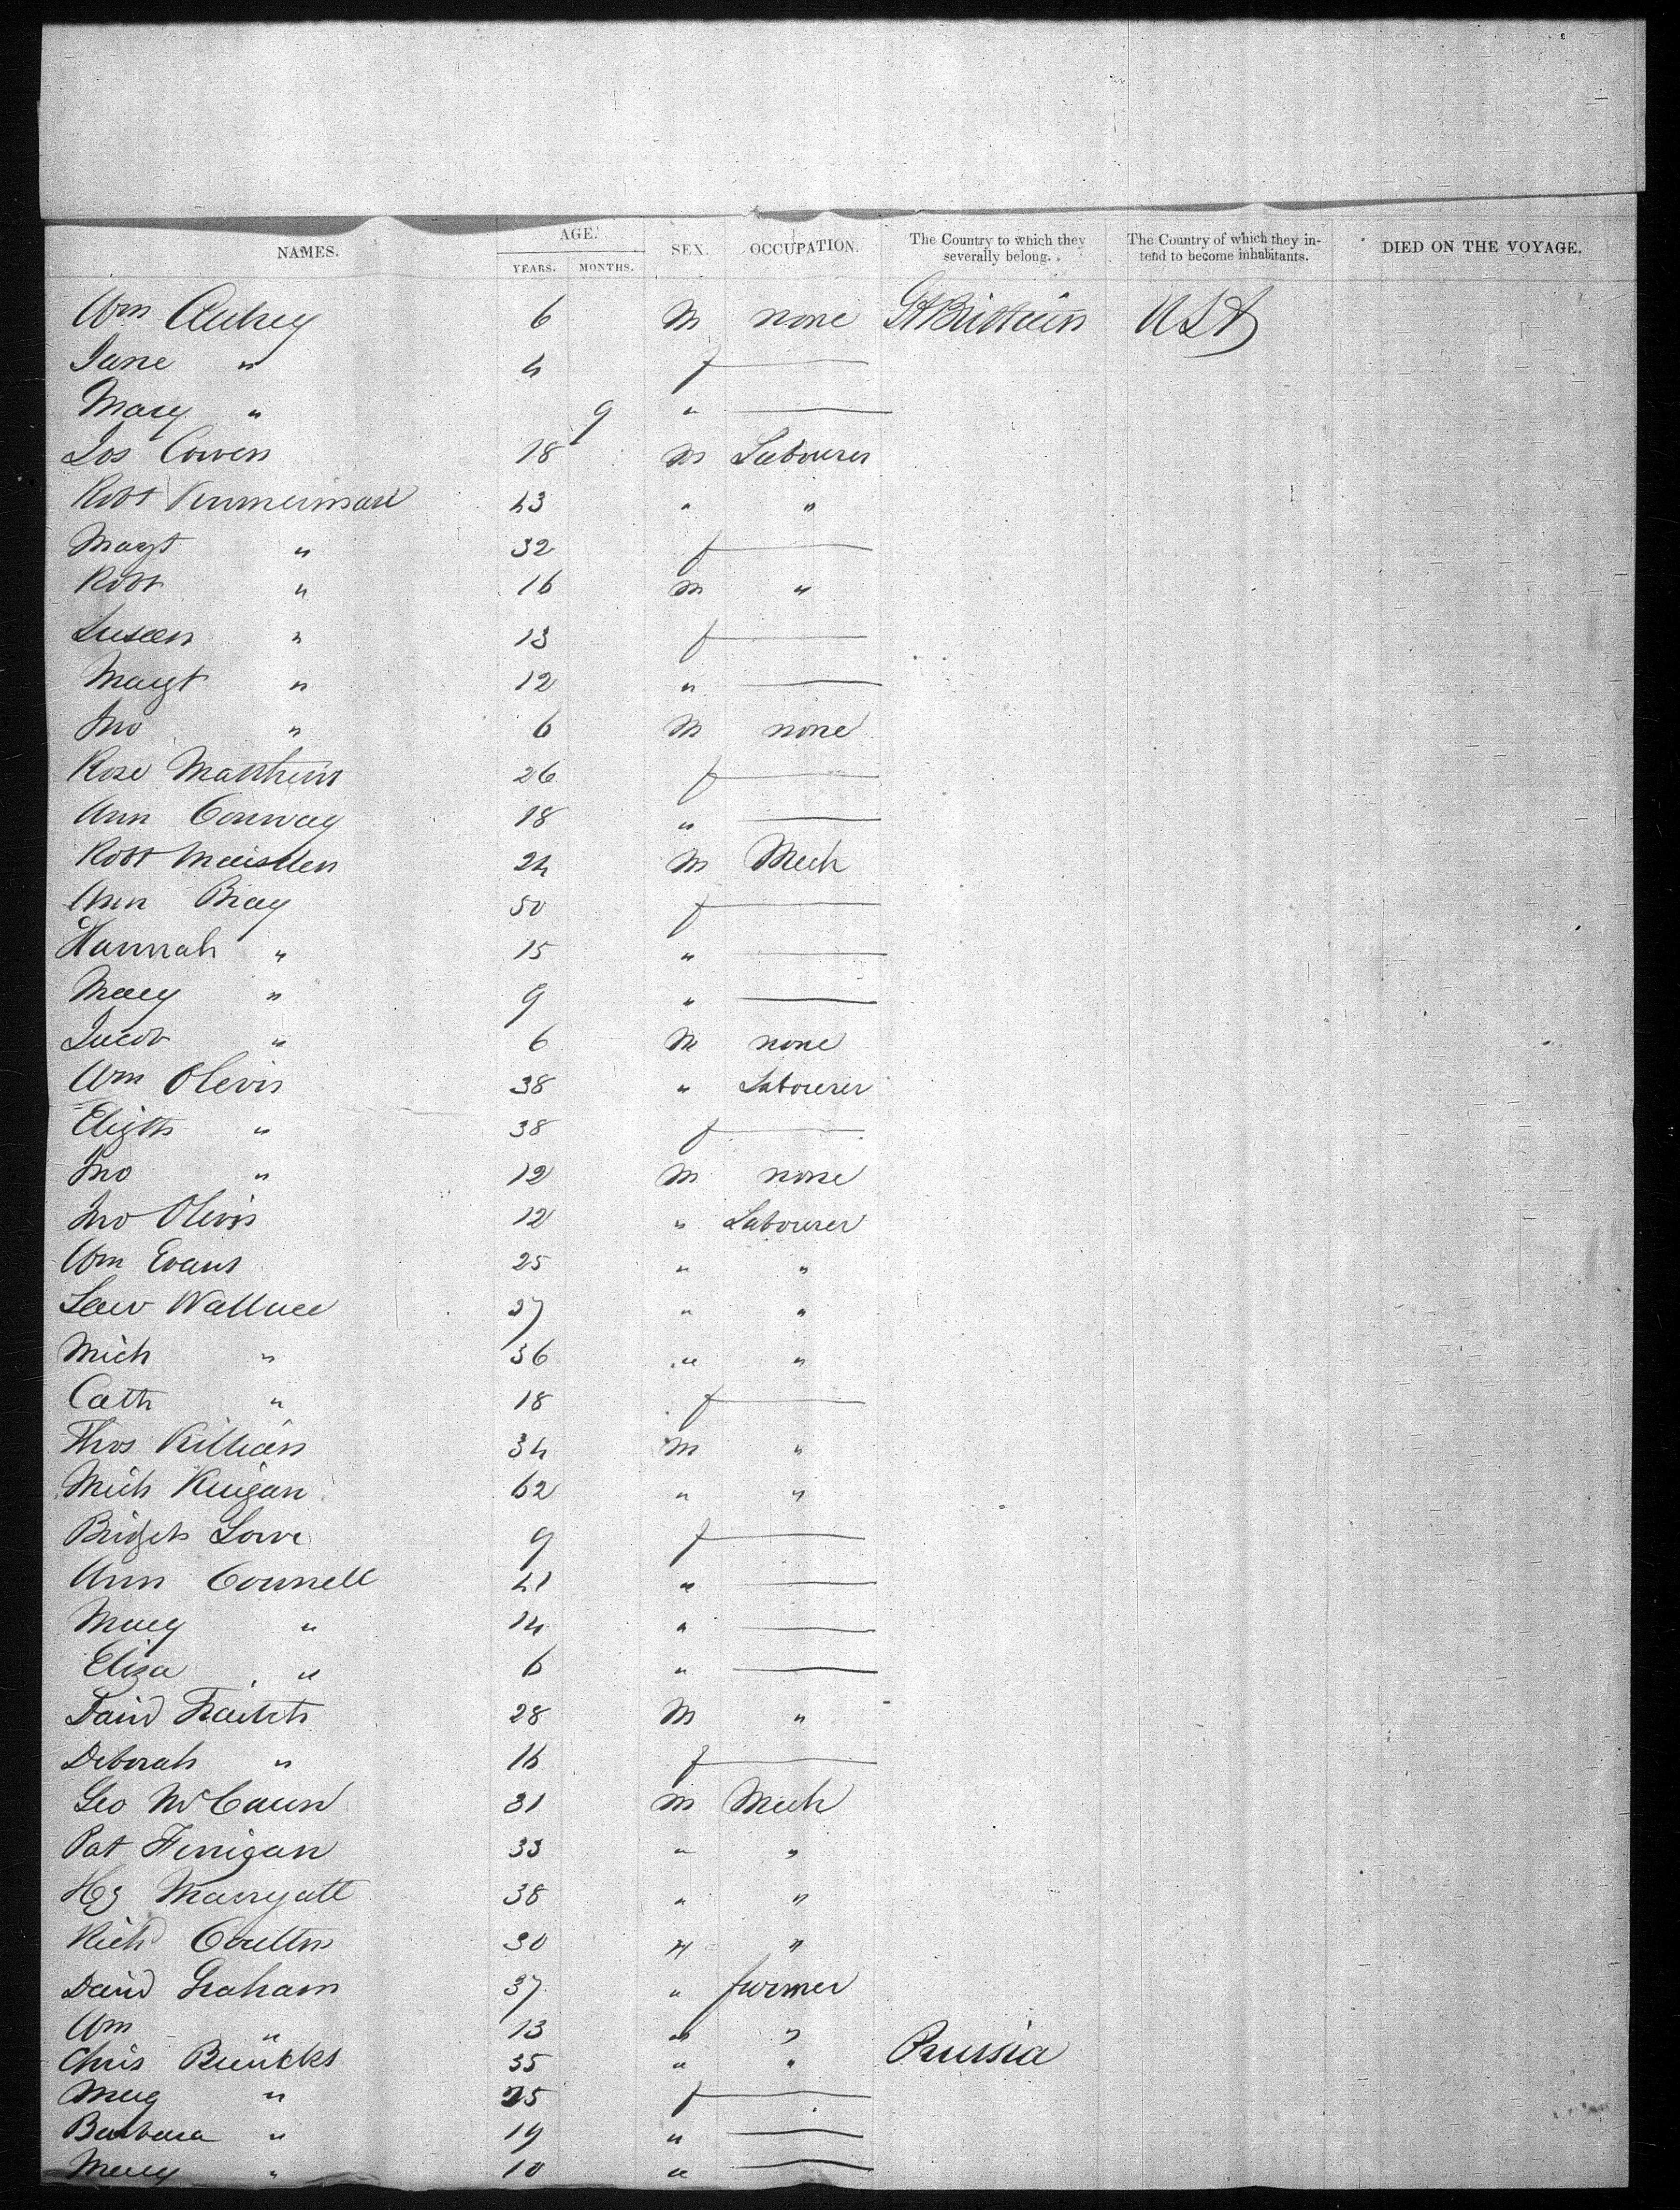 NAMES. AGE. SEX. OCCUPATION. The Country to which they severally belong. The Country of which they intend to become inhabitants. DIED ON THE VOYAGE.
YEARS. MONTHS.
Wm Aubrey 6 M none Gt Brittain USA
Jane " 4 f
Mary " 9 "
Jos Cowen 18 M Labourer
Robt 43 " "
Magt " 32 f
Robt " 16 M "
Susan " 13 f
Magt " 12 "
Jno " 6 M none
Rose Matthews 26 f
Ann Conway 18 "
Robt Maisden 24 M Mech
Ann Bray 50 f
Hannah " 15 "
Mary " 9 "
Jacob " 6 M none
Wm Olevis 38 " Labourer
Elizth " 38 f
Jno " 12 M none
Jno Olevis 12 " Labourer
Wm Evans 25 " "
Law Wallace 27 " "
Mich " 36 " "
Cath " 18 f
Thos Killian 34 M "
Mich Keigan 62 " "
Bridget Lowe 9 f
Ann Connell 41 "
Mary " 14 "
Eliza " 6 "
David 28 M "
Deborah " 16 f
Geo McCaun 31 M Mech
Pat Finnigan 33 " "
Hy Marryatt 38 " "
Richd Coulton 30 " "
David Graham 37 " farmer
Wm " 13 " "
Chris 35 " " Prussia
Mary " 25 f
Barbara " 19 "
Mary " 10 "